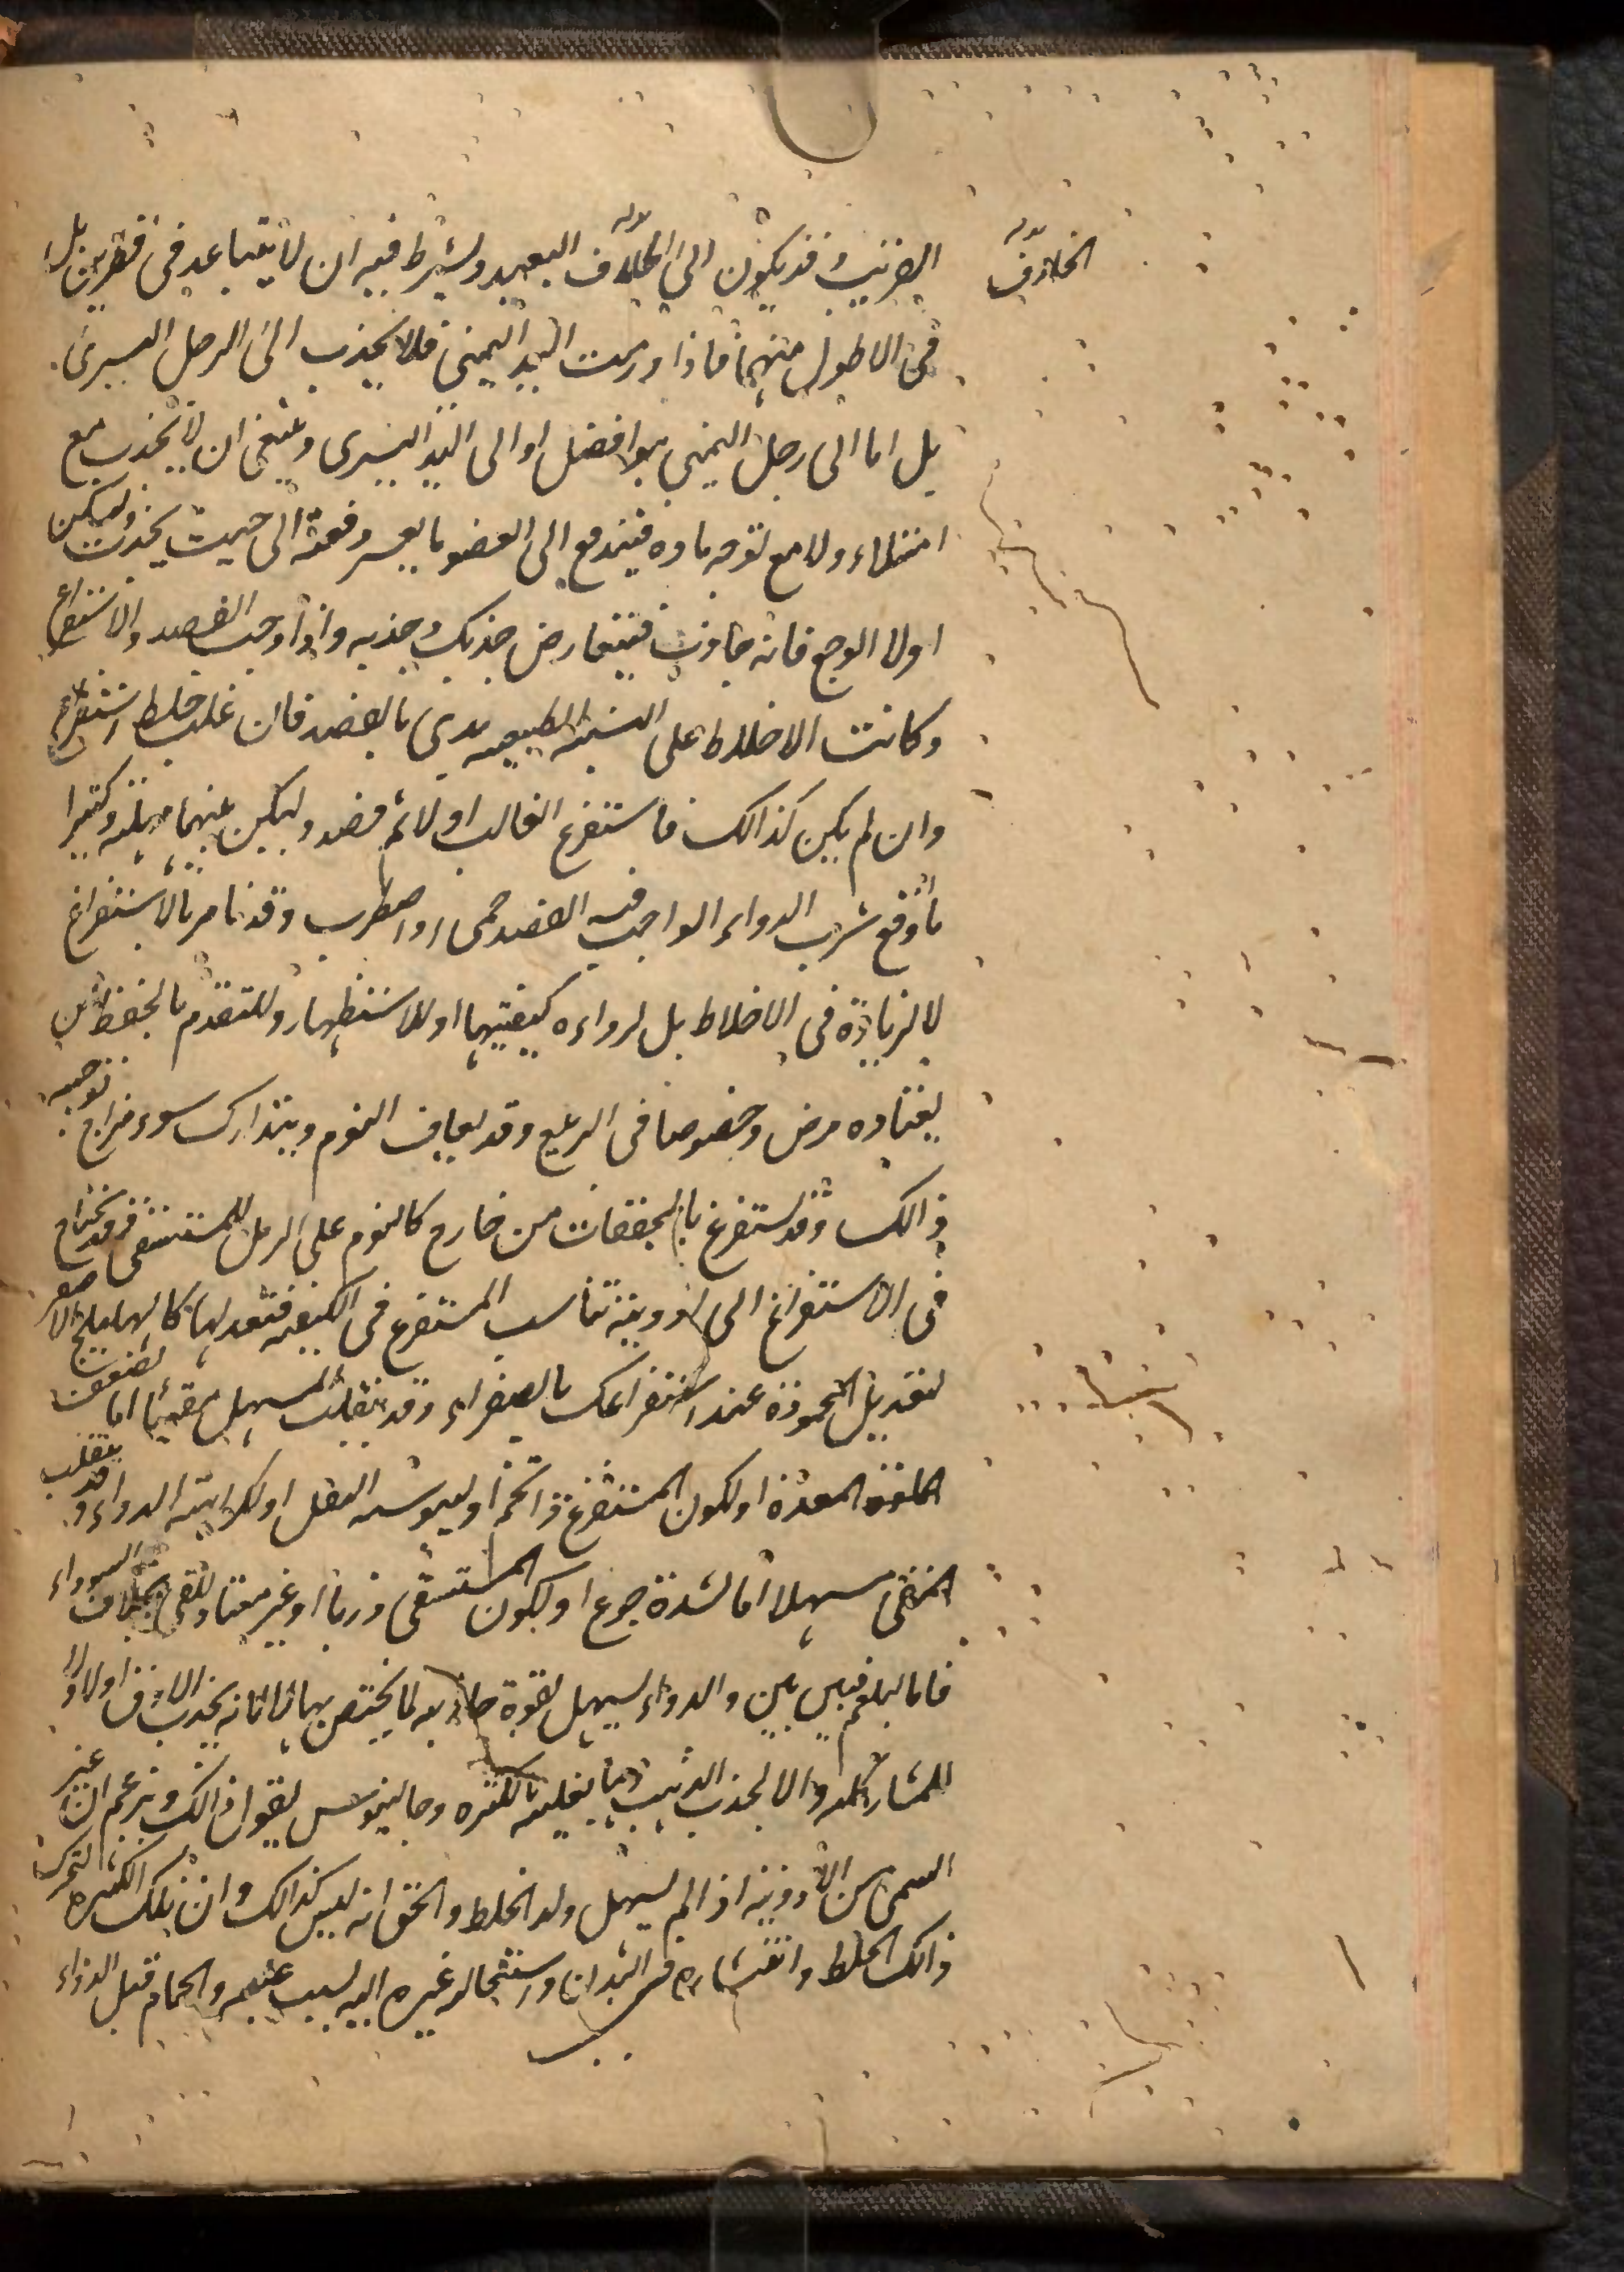 الخلاف بدله
القريب وقد يكون الى الخلاف البعيد ويشرط فيه ان لا يتباعد فى قطرين بل
فى الاطول منهما فاذا ورمت اليد اليمنى فلا يجذب الى الرجل اليسرى
بل اما الى رجل اليمنى هو افضل او الى اليد اليسرى وينبغى ان لا يجذب مع
امتلاء ولا مع توجه ماده فيندفع الى العضو ما يعسر دفعته الى حيث يجذب وليسكن
اولا الوجع فانه جاذب فيتعارض جذبك وجذبه واذا وجب الفصد والاستفراغ
وكانت الاخلاط على النسبة الطبيعيه بدى بالفصد فان غلب خلط استفرغ
وان لم يكن كذالك فاستفرغ الغالب اولا ثم فصد وليكن بينهما مهلة وكثيرا
ما اوقع شرب الدواء الواجب فيه الفصد حمى او اضطراب وقد نامر بالاستفراغ
لا لزيادة فى الاخلاط بل لرداءه كيفيتها او للاستظهار وللتقدم بالحفظ من
يعتاده مرض وخصوصا فى الربيع وقد يعاف النوم ويتدارك سوء مزاج توجبه
ذالك وقد يستفرغ بالمجففات من خارج كالنوم على الرمل للمستسقى وقد يحتاج
فى الاستفراغ الى ادوية تناسب المستفرغ فى الكيفيه فتعدلها كالهليلج الاصفر
لتعديل المحموده عند استفراغك بالصفراء وقد ينقلب المسهل مقيئا اما لضعف
المعدة او لكون المستفرغ ذا تخم او ليبوسه الثفل او لكراهته الدواء وقد ينقلب
المقئ مسهلا اما لشدة جوع او لكون المستسقى ذربا او غير معتاد للقى بخلاف السوداء
فاما البلغم فبين بين والدواء يسهل بقوة جاذبه لما يختص بها لا انه يجذب الارق اولا ولا
للمشاركله والا لجذب الذهب ما يغلبه بالكثره وجالينوس يقول ذالك ويزعم ان غير
السمى من الادوية اذا لم يسهل ولد الخلط والحق انه ليس كذالك وان تلك الكثيره لتحرك
ذالك الخلط وانتشاره فى البدن واستحاله غيره اليه بسبب غلبته والحمام قبل الدواء